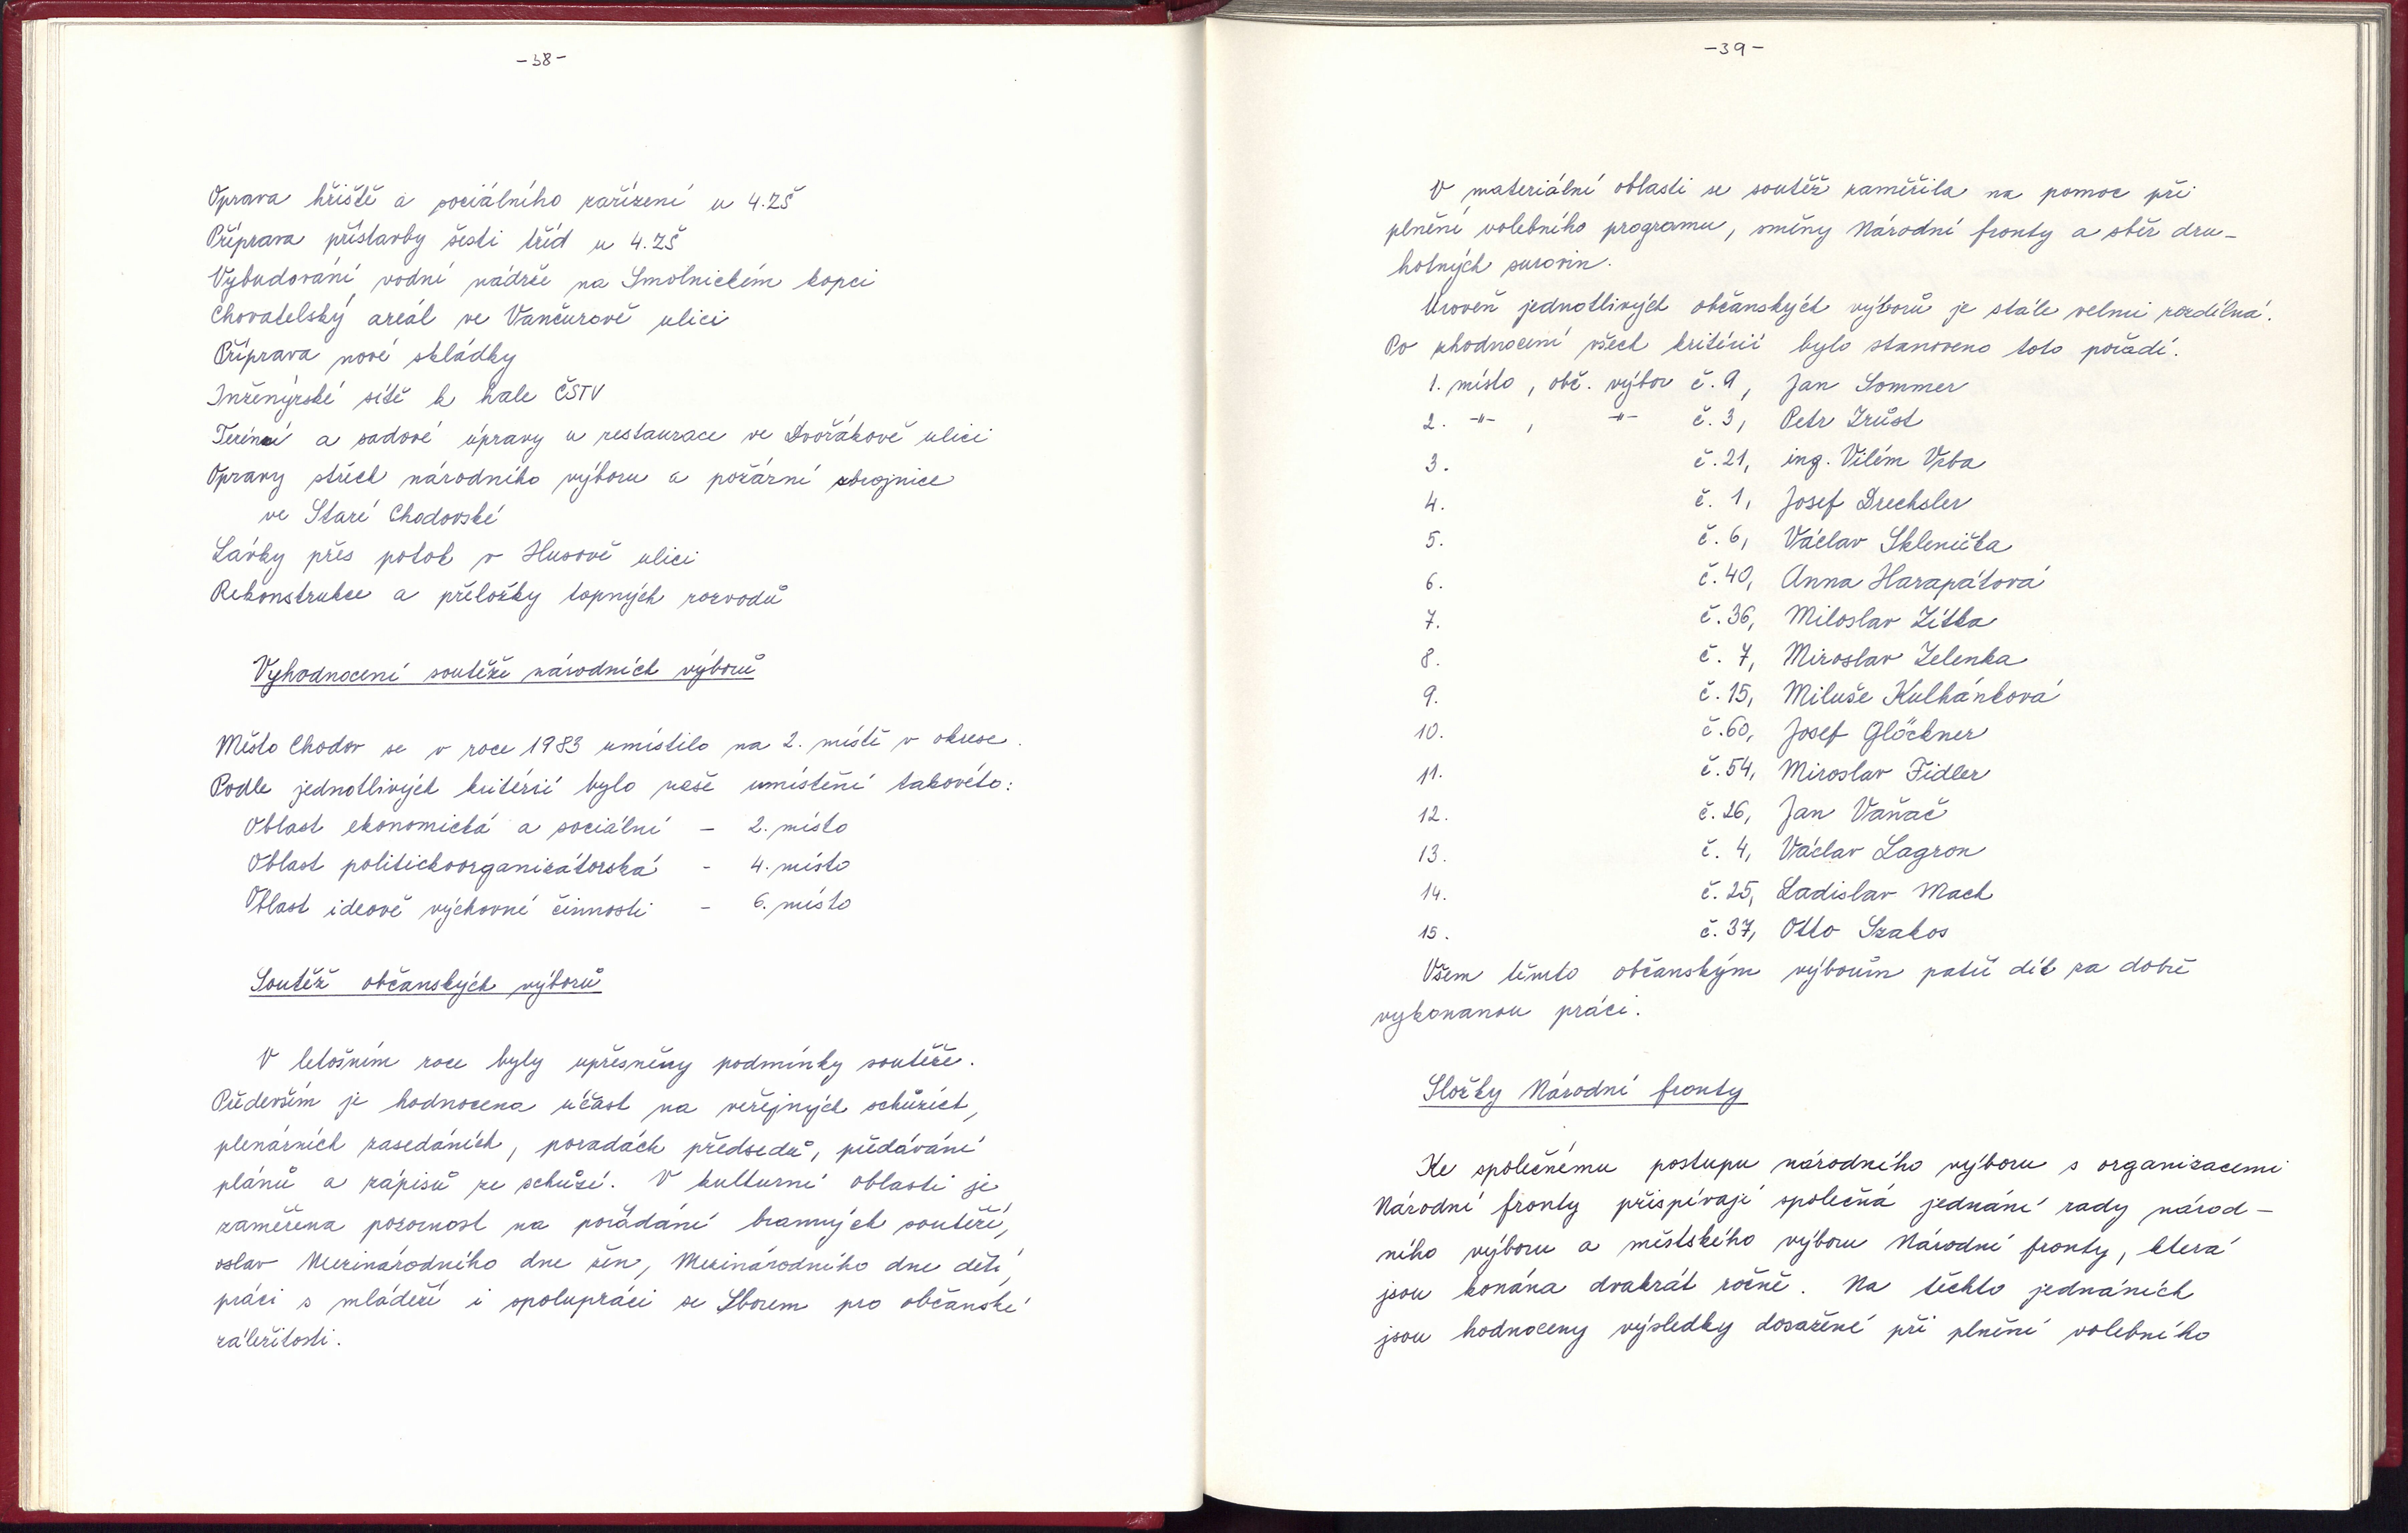 -38-
Oprava hřiště a sociálního zařízení u 4.ZŠ
Příprava přístavby šesti tříd u 4.ZŠ
Vybudování vodní nádrže na Smolnickém kopci
Chovatelský areál ve Vančurově ulici
Příprava nové skládky
Inženýrské sítě k hale ČSTV
Terénní a sadové úpravy u restaurace ve Dvořákově ulici
Opravy střech národního výboru a požární zbrojnice
ve Staré Chodovské
Lávky přes potok v Husově ulici
Rekonstrukce a přeložky topných rozvodů
Vyhodnocení soutěže národních výborů
Město Chodov se v roce 1983 umístilo na 2. místě v okrese.
Podle jednotlivých kritérií bylo naše umístění takovéto:
Oblast ekonomická a sociální - 2. místo
Oblast politickoorganizátorská - 4. místo
Oblast ideově výchovné činnosti - 6. místo
Soutěž občanských výborů
V letošním roce byly upřesněny podmínky soutěže.
Především je hodnocena účast na veřejných schůzích,
plenárních zasedáních, poradách předsedů, předávání
plánů a zápisů ze schůzí. V kulturní oblasti je
zaměřena pozornost na pořádání branných soutěží,
oslav Mezinárodního dne žen, Mezinárodního dne dětí,
práci s mládeží i spolupráci se Sborem pro občanské
záležitosti.
-39-
V materiální oblasti se soutěž zaměřila na pomoc při
plnění volebního programu, směny Národní fronty a sběr dru-
hotných surovin.
Úroveň jednotlivých občanských výborů je stále velmi rozdílná.
Po zhodnocení všech kritérií bylo stanoveno toto pořadí.
1. místo, obč. výbor č. 9, Jan Sommer
2. -"- , -"- č. 3, Petr Zrůst
3. č. 21, ing. Vilém Vrba
4. č. 1, Josef Drechsler
5. č. 6, Václav Sklenička
6. č. 40, Anna Harapátová
7. č. 36, Miloslav Zítka
8. č. 7, Miroslav Zelenka
9. č. 15, Miluše Kulhánková
10. č. 60, Josef Glöckner
11. č. 54, Miroslav Fidler
12. č. 26, Jan Vaňač
13. č. 4, Václav Lagron
14. č. 25, Ladislav Mach
15. č. 37, Otto Szakos
Všem těmto občanským výborům patří dík za dobře
vykonanou práci.
Složky Národní fronty
Ke společnému postupu národního výboru s organizacemi
Národní fronty přispívají společná jednání rady národ-
ního výboru a městského výboru Národní fronty, která
jsou konána dvakrát ročně. Na těchto jednáních
jsou hodnoceny výsledky dosažené při plnění volebního